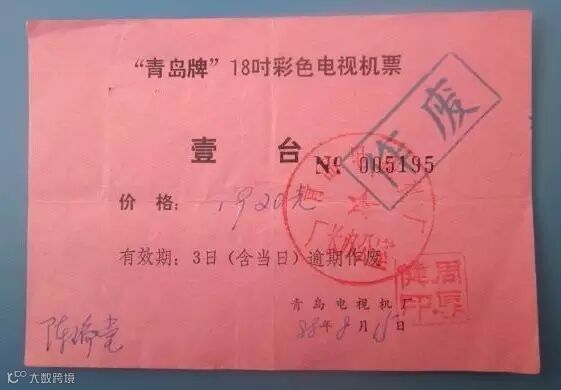 “青岛牌”18吋彩色电视机票
作废
壹 台
№ 005195
价格: 1920元
有效期: 3日(含当日)逾期作废
青岛电视机厂
88年8月15日
大数跨境